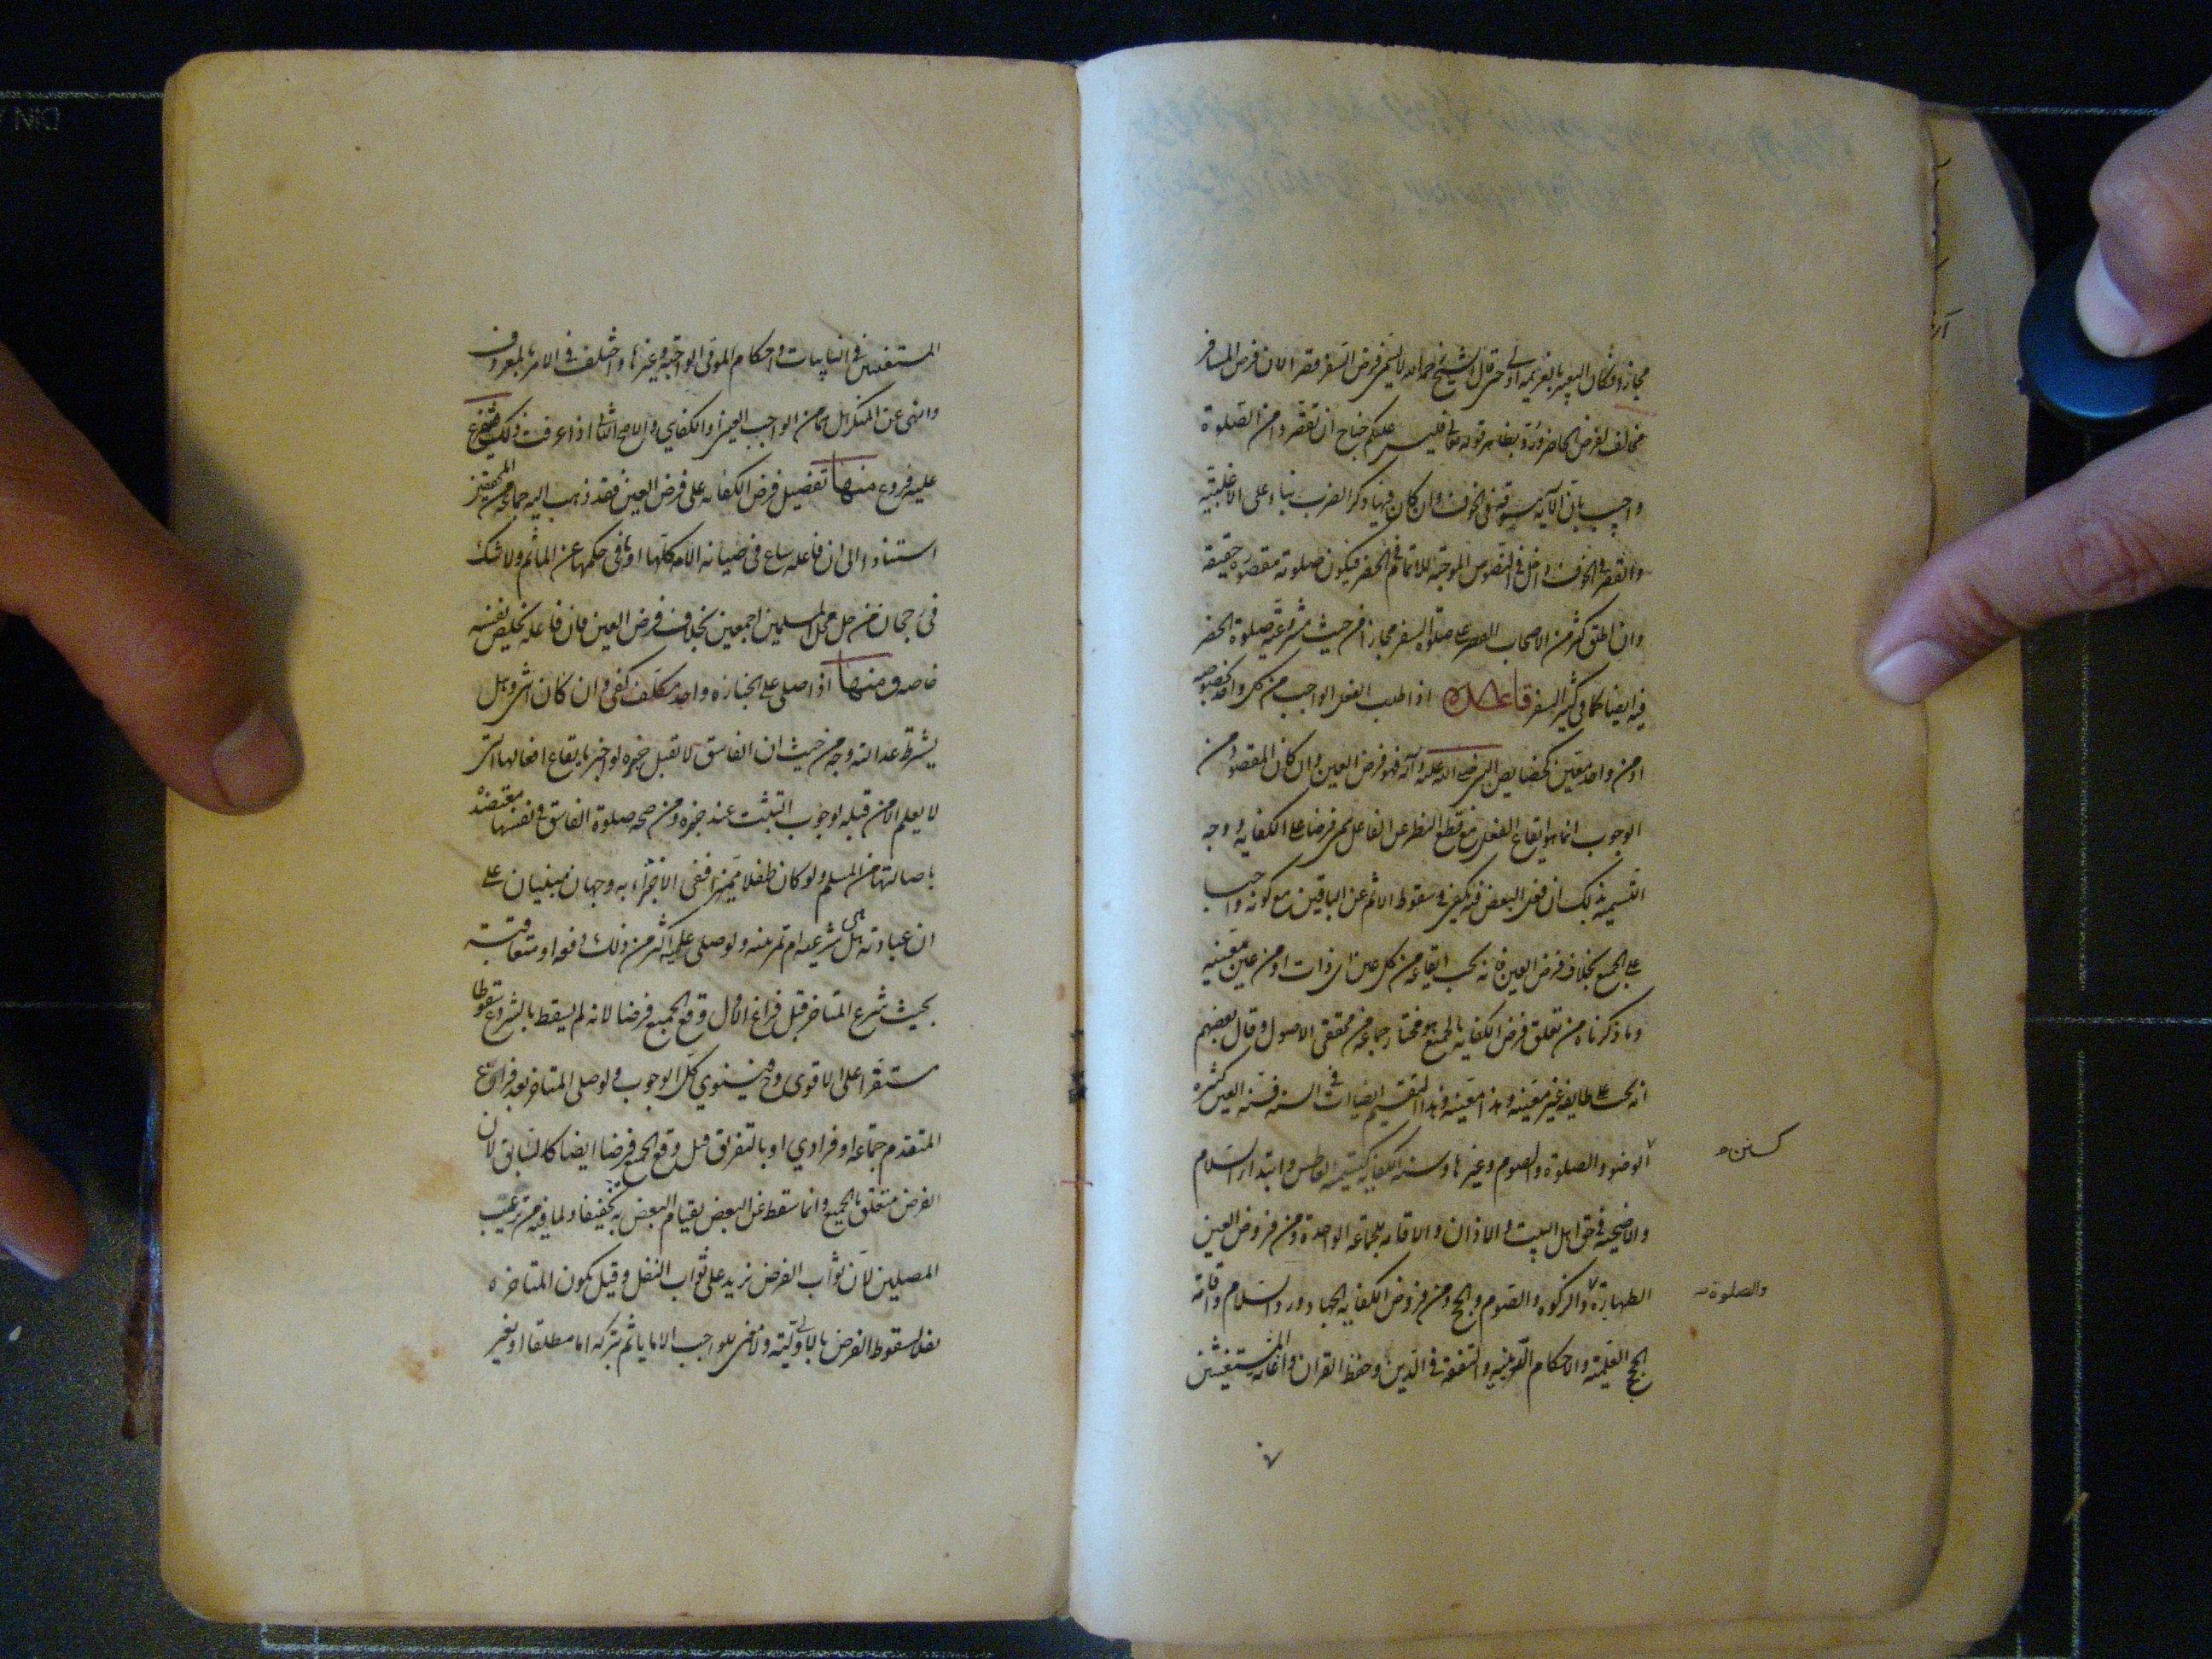 مجازا فكان التعبير بالعزيمة اولى حتى قال الشيخ رحمه الله لا يسمى فرض السفر قصرا لان فرض المسافر
مخالف لفرض الحاضر ورد بظاهر قوله تعالى فليس عليكم جناح ان تقصروا من الصلوة
واجيب بان الآية مسوقة في الخوف وان كان فيها ذكر الضرب بناء على الاغلبية
والقصر في الخوف داخل في النصوص الموجبة للاتمام في الحضر فيكون صلوته مقصورة حقيقة
وان اطلق كثير من الاصحاب القصر على صلوة السفر مجازا من حيث مشروعية صلوة الحضر
فيه ايضا كما في كثير السفر قاعدة اذا طلب الفعل الواجب من كل واحد بخصوصه
او من واحد معين كخصايص النبي صلى الله عليه وآله فهو فرض العين وان كان المقصود من
الوجوب انما هو ايقاع الفعل مع قطع النظر عن الفاعل سمي فرضا على الكفاية ووجه
التسمية بذلك ان فعل البعض فيه يكفي في سقوط الاثم عن الباقين مع كونه واجبا
على الجميع بخلاف فرض العين فانه يجب ايقاعه من كل عين اي ذات او من عين معينة
وما ذكرناه من تعلق فرض الكفاية بالجميع هو مختار جماعة من محققي الاصول وقال بعضهم
انه يجب على طايفة غير معينة وهذا معينة وهذا التقسيم ايضا آت في السنة فسنة العين كثيرة
الوضوء والصلوة والصوم وغيرها وسنة الكفاية كتسمية العاطس وابتداء السلام
كسنن
والاضحية في حق اهل البيت والاذان والاقامة للجماعة الواحدة ومن فروض العين
الطهارة والزكوة والصوم والحج ومن فروض الكفاية الجهاد ورد السلام واقامة
والصلوة
الحجج العلمية والاحكام الدينية والتفقه في الدين وحفظ القرآن واغاثة المستغيثين
٧
المستغيثين في النايبات واحكام الموتى الواجبة وغيرها واختلف في الامر بالمعروف
والنهى عن المنكر هل هما من الواجب العيني او الكفايي والاصح الثاني اذا عرفت ذلك فيتفرع
عليه فروع منها تفضيل فرض الكفاية على فرض العين فقد ذهب اليه جماعة من المحققين
استنادا الى ان فاعله ساع في صيانة الامة كلها او ما في حكمها عن الماثم ولا شك
في رجحان من حل محل المسلمين اجمعين بخلاف فرض العين فان فاعله يخلص نفسه
خاصه ومنها اذا صلى على الجنازة واحد مكلف كفى وان كان انثى وهل
يشترط عدالته وجه من حيث ان الفاسق لا تقبل خبره لو اخبر بايقاع افعالها التي
لا يعلم الا من قبله لوجوب التثبت عند خبره ومن صحة صلوة الفاسق في نفسها معتضدة
باصالتها من المسلم ولو كان طفلا مميزا ففي الاجتزاء به وجهان مبنيان على
ان عبادته هل هي شرعية ام تمرينية ولو صلى عليه اكثر من ذلك دفعة او متعاقبة
بحيث شرع المتاخر قبل فراغ الاول وقع الجميع فرضا لانه لم يسقط بالشروع سقوطا
مستقرا على الاقوى وح فينوي كل الوجوب ولو صلى المتاخر بعد فراغ
المتقدم جماعة او فرادي او بالتفريق قيل وقع الجميع فرضا ايضا كالسابق لان
الفرض متعلق بالجميع وانما سقط عن البعض بقيام البعض به تخفيفا ولما فيه من ترغيب
المصلين لان ثواب الفرض يزيد على ثواب النفل وقيل يكون المتاخرة
نفلا لسقوط الفرض بالاولى ولا معنى للواجب الا ما ياثم بتركه اما مطلقا او بغير